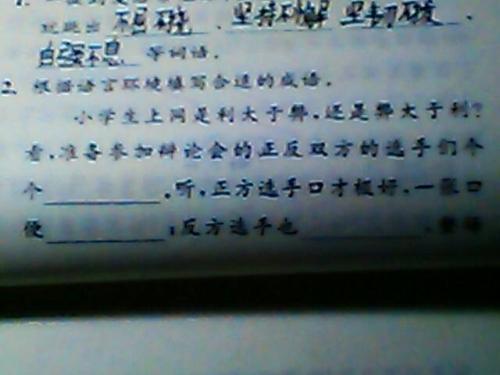 出 不屈不挠、坚持不懈 坚韧不拔、
自强不息 等词语。
2. 根据语言环境填写合适的成语。
小学生上网是利大于弊,还是弊大于利?
看,准备参加辩论会的正反双方的选手们个
个 。听,正方选手口才极好,一张口
便 ;反方选手也 。